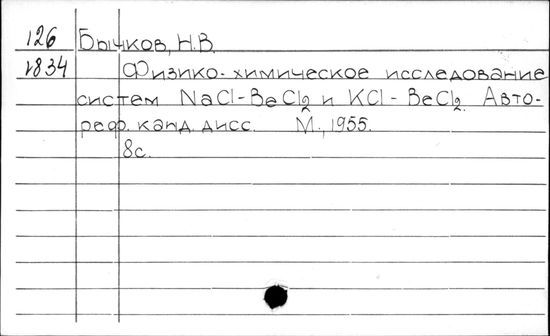 126 Бычков, Н.В.
1834 Физико-химическое исследование
систем NaCl-BeCl2 и KCl-BeCl2. Авто-
реф. канд. дисс. М., 1955.
8с.